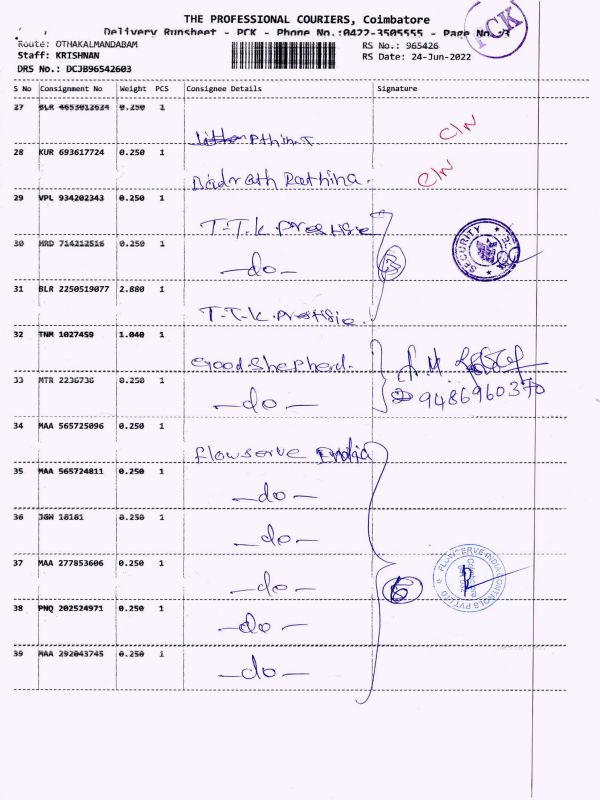 THE PROFESSIONAL COURIERS, Coimbatore
Delivery Runsheet - PCK - Phone No.:0422-3505555 - Page No.:3
PCK
Route: OTHAKALMANDABAM
RS No.: 965426
Staff: KRISHNAN
RS Date: 24-Jun-2022
DRS No.: DCJB96542603
S No Consignment No Weight PCS Consignee Details Signature
27 BLR 4653012634 0.250 1
C/N
28 KUR 693617724 0.250 1
Rathina.
C/N
29 VPL 934202343 0.250 1
T.T.K. 
SECURITY
30 MRD 714212516 0.250 1
-do-
3
31 BLR 2250519077 2.880 1
T.T.K.
32 TNM 1027459 1.040 1
Good Shepherd.
33 MTR 2236736 0.250 1
-do-
9486960370
34 MAA 565725096 0.250 1
flowserve India
35 MAA 565724811 0.250 1
-do-
36 JGW 16161 0.250 1
-do-
37 MAA 277853606 0.250 1
-do-
6
FLOWSERVE INDIA CONTROLS PVT LTD
38 PNQ 202524971 0.250 1
-do-
39 MAA 292043745 0.250 1
-do-